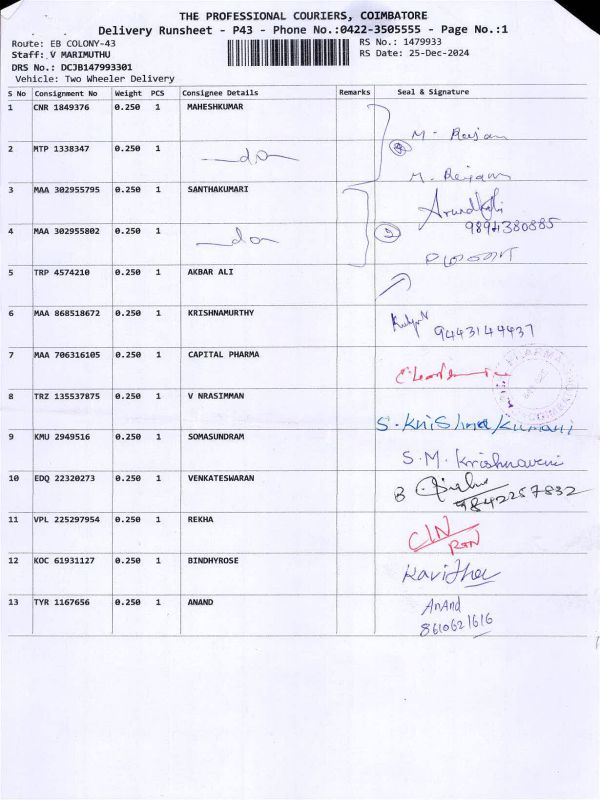 THE PROFESSIONAL COURIERS, COIMBATORE
Delivery Runsheet - P43 - Phone No.:0422-3505555 - Page No.:1
Route: EB COLONY-43 RS No.: 1479933
Staff: V MARIMUTHU RS Date: 25-Dec-2024
DRS No.: DCJB147993301
Vehicle: Two Wheeler Delivery
S No Consignment No Weight PCS Consignee Details Remarks Seal & Signature
1 CNR 1849376 0.250 1 MAHESHKUMAR M. Rajan
2 MTP 1338347 0.250 1 do M. Rajan
3 MAA 302955795 0.250 1 SANTHAKUMARI
9894380885
4 MAA 302955802 0.250 1 do
5 TRP 4574210 0.250 1 AKBAR ALI
6 MAA 868518672 0.250 1 KRISHNAMURTHY 9443144437
7 MAA 706316105 0.250 1 CAPITAL PHARMA
8 TRZ 135537875 0.250 1 V NRASIMMAN S. KriShna Kumari
9 KMU 2949516 0.250 1 SOMASUNDRAM S.M. Krishnaveni
10 EDQ 22320273 0.250 1 VENKATESWARAN 9842257832
11 VPL 225297954 0.250 1 REKHA
12 KOC 61931127 0.250 1 BINDHYROSE Kavitha
13 TYR 1167656 0.250 1 ANAND AnAnd
8610621616